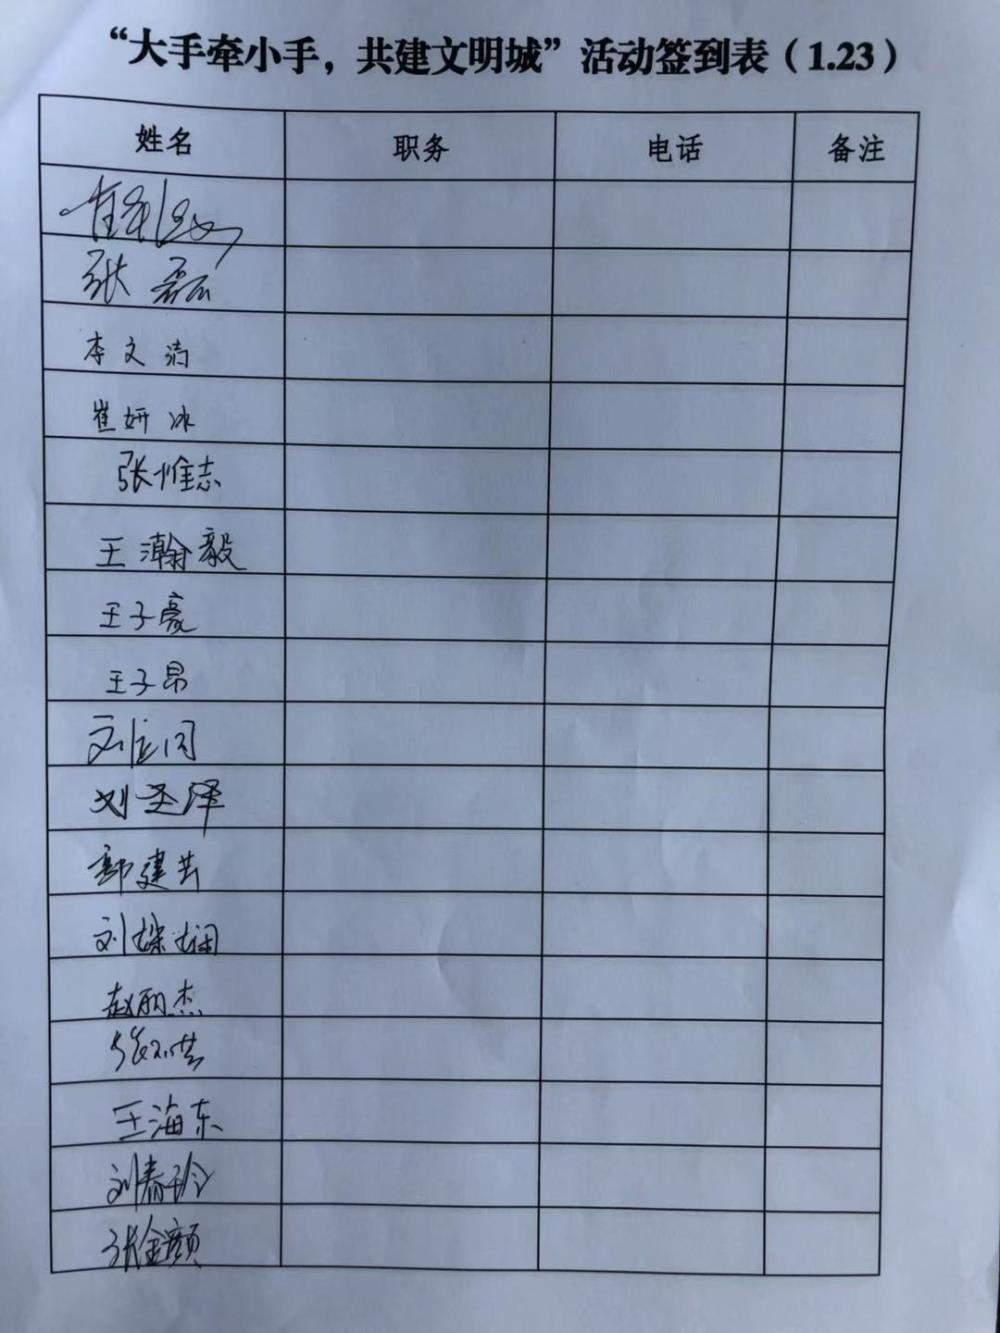 “大手牵小手，共建文明城”活动签到表（1.23）
姓名 职务 电话 备注
张磊
李文涛
崔妍冰
张惟志
王瀚毅
王子豪
王子昂
刘
刘圣泽
郭建芸
刘姝娴
赵丽杰
张
王海东
刘春玲
张金颜